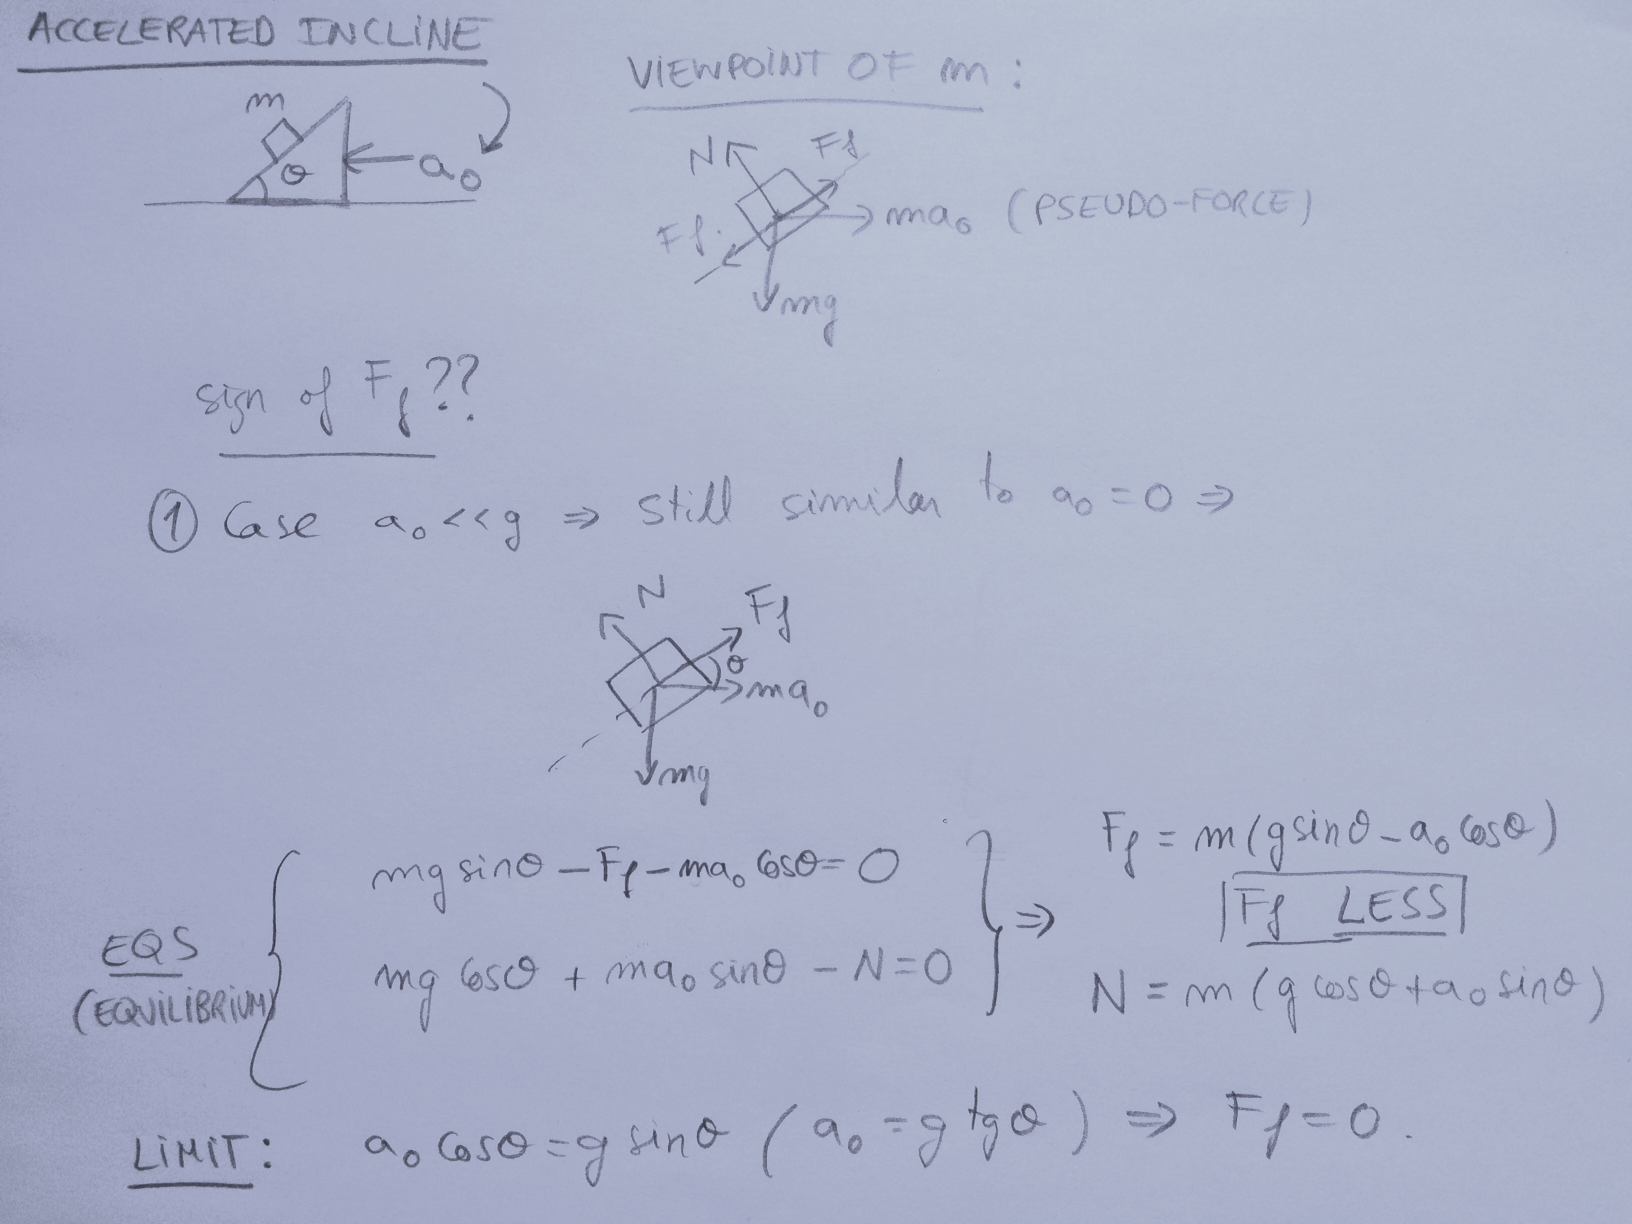 ACCELERATED INCLINE
m
θ
a₀
VIEWPOINT OF m:
N
Ff
Ff
ma₀ (PSEUDO-FORCE)
mg
sign of Ff??
① Case a₀<<g ⇒ still similar to a₀=0 ⇒
N
Ff
θ
ma₀
mg
EQS
(EQUILIBRIUM)
mg sinθ – Ff – ma₀ cosθ = 0
mg cosθ + ma₀ sinθ – N = 0
⇒
Ff = m(g sinθ – a₀ cosθ)
Ff LESS
N = m(g cosθ + a₀ sinθ)
LIMIT: a₀ cosθ = g sinθ (a₀ = g tgθ) ⇒ Ff = 0.